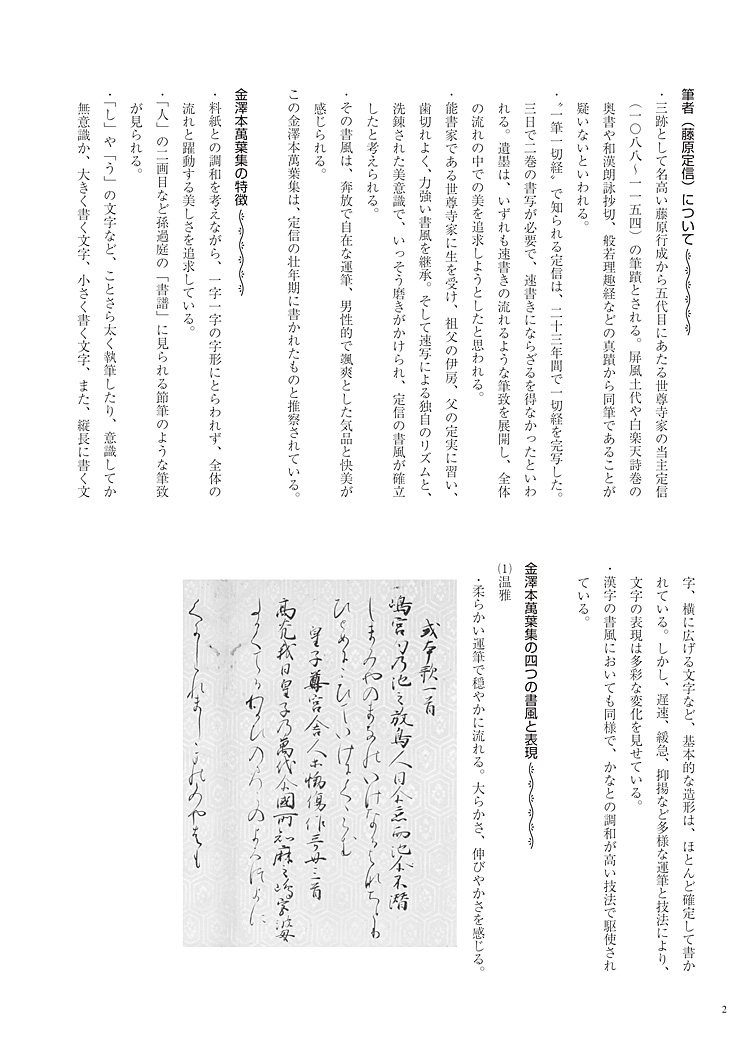 筆者（藤原定信）について
・三跡として名高い藤原行成から五代目にあたる世尊寺家の当主定信
（一〇八八～一一五四）の筆蹟とされる。屏風土代や白楽天詩巻の
奥書や和漢朗詠抄切、般若理趣経などの真蹟から同筆であることが
疑いないといわれる。
・〝一筆一切経〟で知られる定信は、二十三年間で一切経を完写した。
三日で二巻の書写が必要で、速書きにならざるを得なかったといわ
れる。遺墨は、いずれも速書きの流れるような筆致を展開し、全体
の流れの中での美を追求しようとしたと思われる。
・能書家である世尊寺家に生を受け、祖父の伊房、父の定実に習い、
歯切れよく、力強い書風を継承。そして速写による独自のリズムと、
洗錬された美意識で、いっそう磨きがかけられ、定信の書風が確立
したと考えられる。
・その書風は、奔放で自在な運筆、男性的で颯爽とした気品と快美が
感じられる。
この金澤本萬葉集は、定信の壮年期に書かれたものと推察されている。
金澤本萬葉集の特徴
・料紙との調和を考えながら、一字一字の字形にとらわれず、全体の
流れと躍動する美しさを追求している。
・「人」の二画目など孫過庭の「書譜」に見られる節筆のような筆致
が見られる。
・「し」や「う」の文字など、ことさら太く執筆したり、意識してか
無意識か、大きく書く文字、小さく書く文字、また、縦長に書く文
字、横に広げる文字など、基本的な造形は、ほとんど確定して書か
れている。しかし、遅速、緩急、抑揚など多様な運筆と技法により、
文字の表現は多彩な変化を見せている。
・漢字の書風においても同様で、かなとの調和が高い技法で駆使され
ている。
金澤本萬葉集の四つの書風と表現
⑴温雅
・柔らかい運筆で穏やかに流れる。大らかさ、伸びやかさを感じる。
或本歌一首
嶋宮勾乃池之放鳥人目尓恋而池尓不潜
しまみやのまなりのいけなるはなちとり
ひとめにこひていけにくゝらす
皇子尊宮舎人等慟傷作哥廿三首
高光我日皇子乃萬代尓國所知麻之嶋宮波母
2